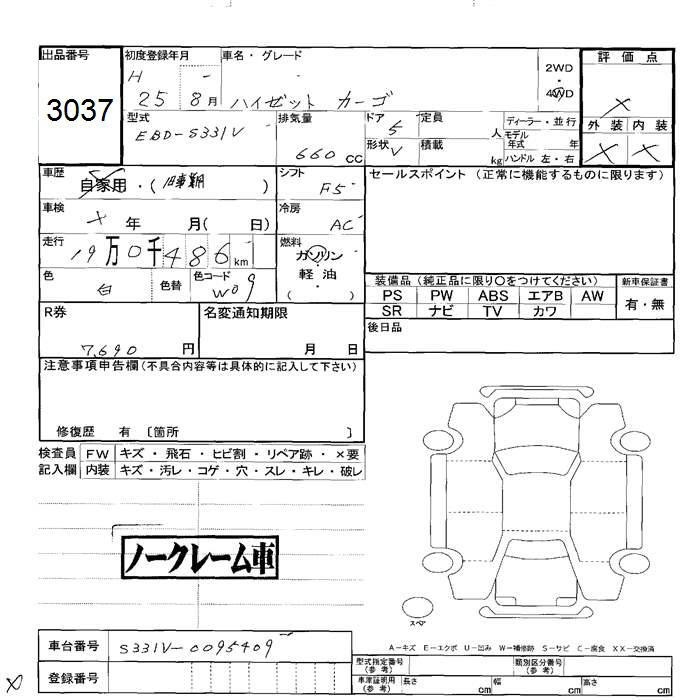 出品番号 初度登録年月 車名・グレード 2WD 評価点
3037 H 25 8月 ハイゼット カーゴ 4WD ×
型式 排気量 ドア 定員 ディーラー・並行 外装 内装
EBD-S331V 660cc 5 人 モデル年式 年 × ×
形状 V 積載 kg ハンドル 左・右
車歴 自家用・( ) シフト F5 セールスポイント(正常に機能するものに限ります)
車検 × 年 月( 日) 冷房 AC
走行 19万0千486km 燃料 ガソリン・軽油( )
色 白 色替 色コード W09
装備品(純正品に限り○をつけてください) 新車保証書
PS PW ABS エアB AW 有・無
SR ナビ TV カワ
R券 7,690円 名変通知期限 月 日 後日品
注意事項申告欄(不具合内容等は具体的に記入して下さい)
修復歴 有 〔箇所 〕
検査員 FW キズ・飛石・ヒビ割・リペア跡・×要
記入欄 内装 キズ・汚レ・コゲ・穴・スレ・キレ・破レ
ノークレーム車
スペア
A-キズ E-エクボ U-凹み W-補修跡 S-サビ C-腐食 XX-交換済
車台番号 S331V-0095409
型式指定番号(参考) 類別区分番号(参考)
登録番号 車庫証明用(参考) 長さ cm 幅 cm 高さ cm